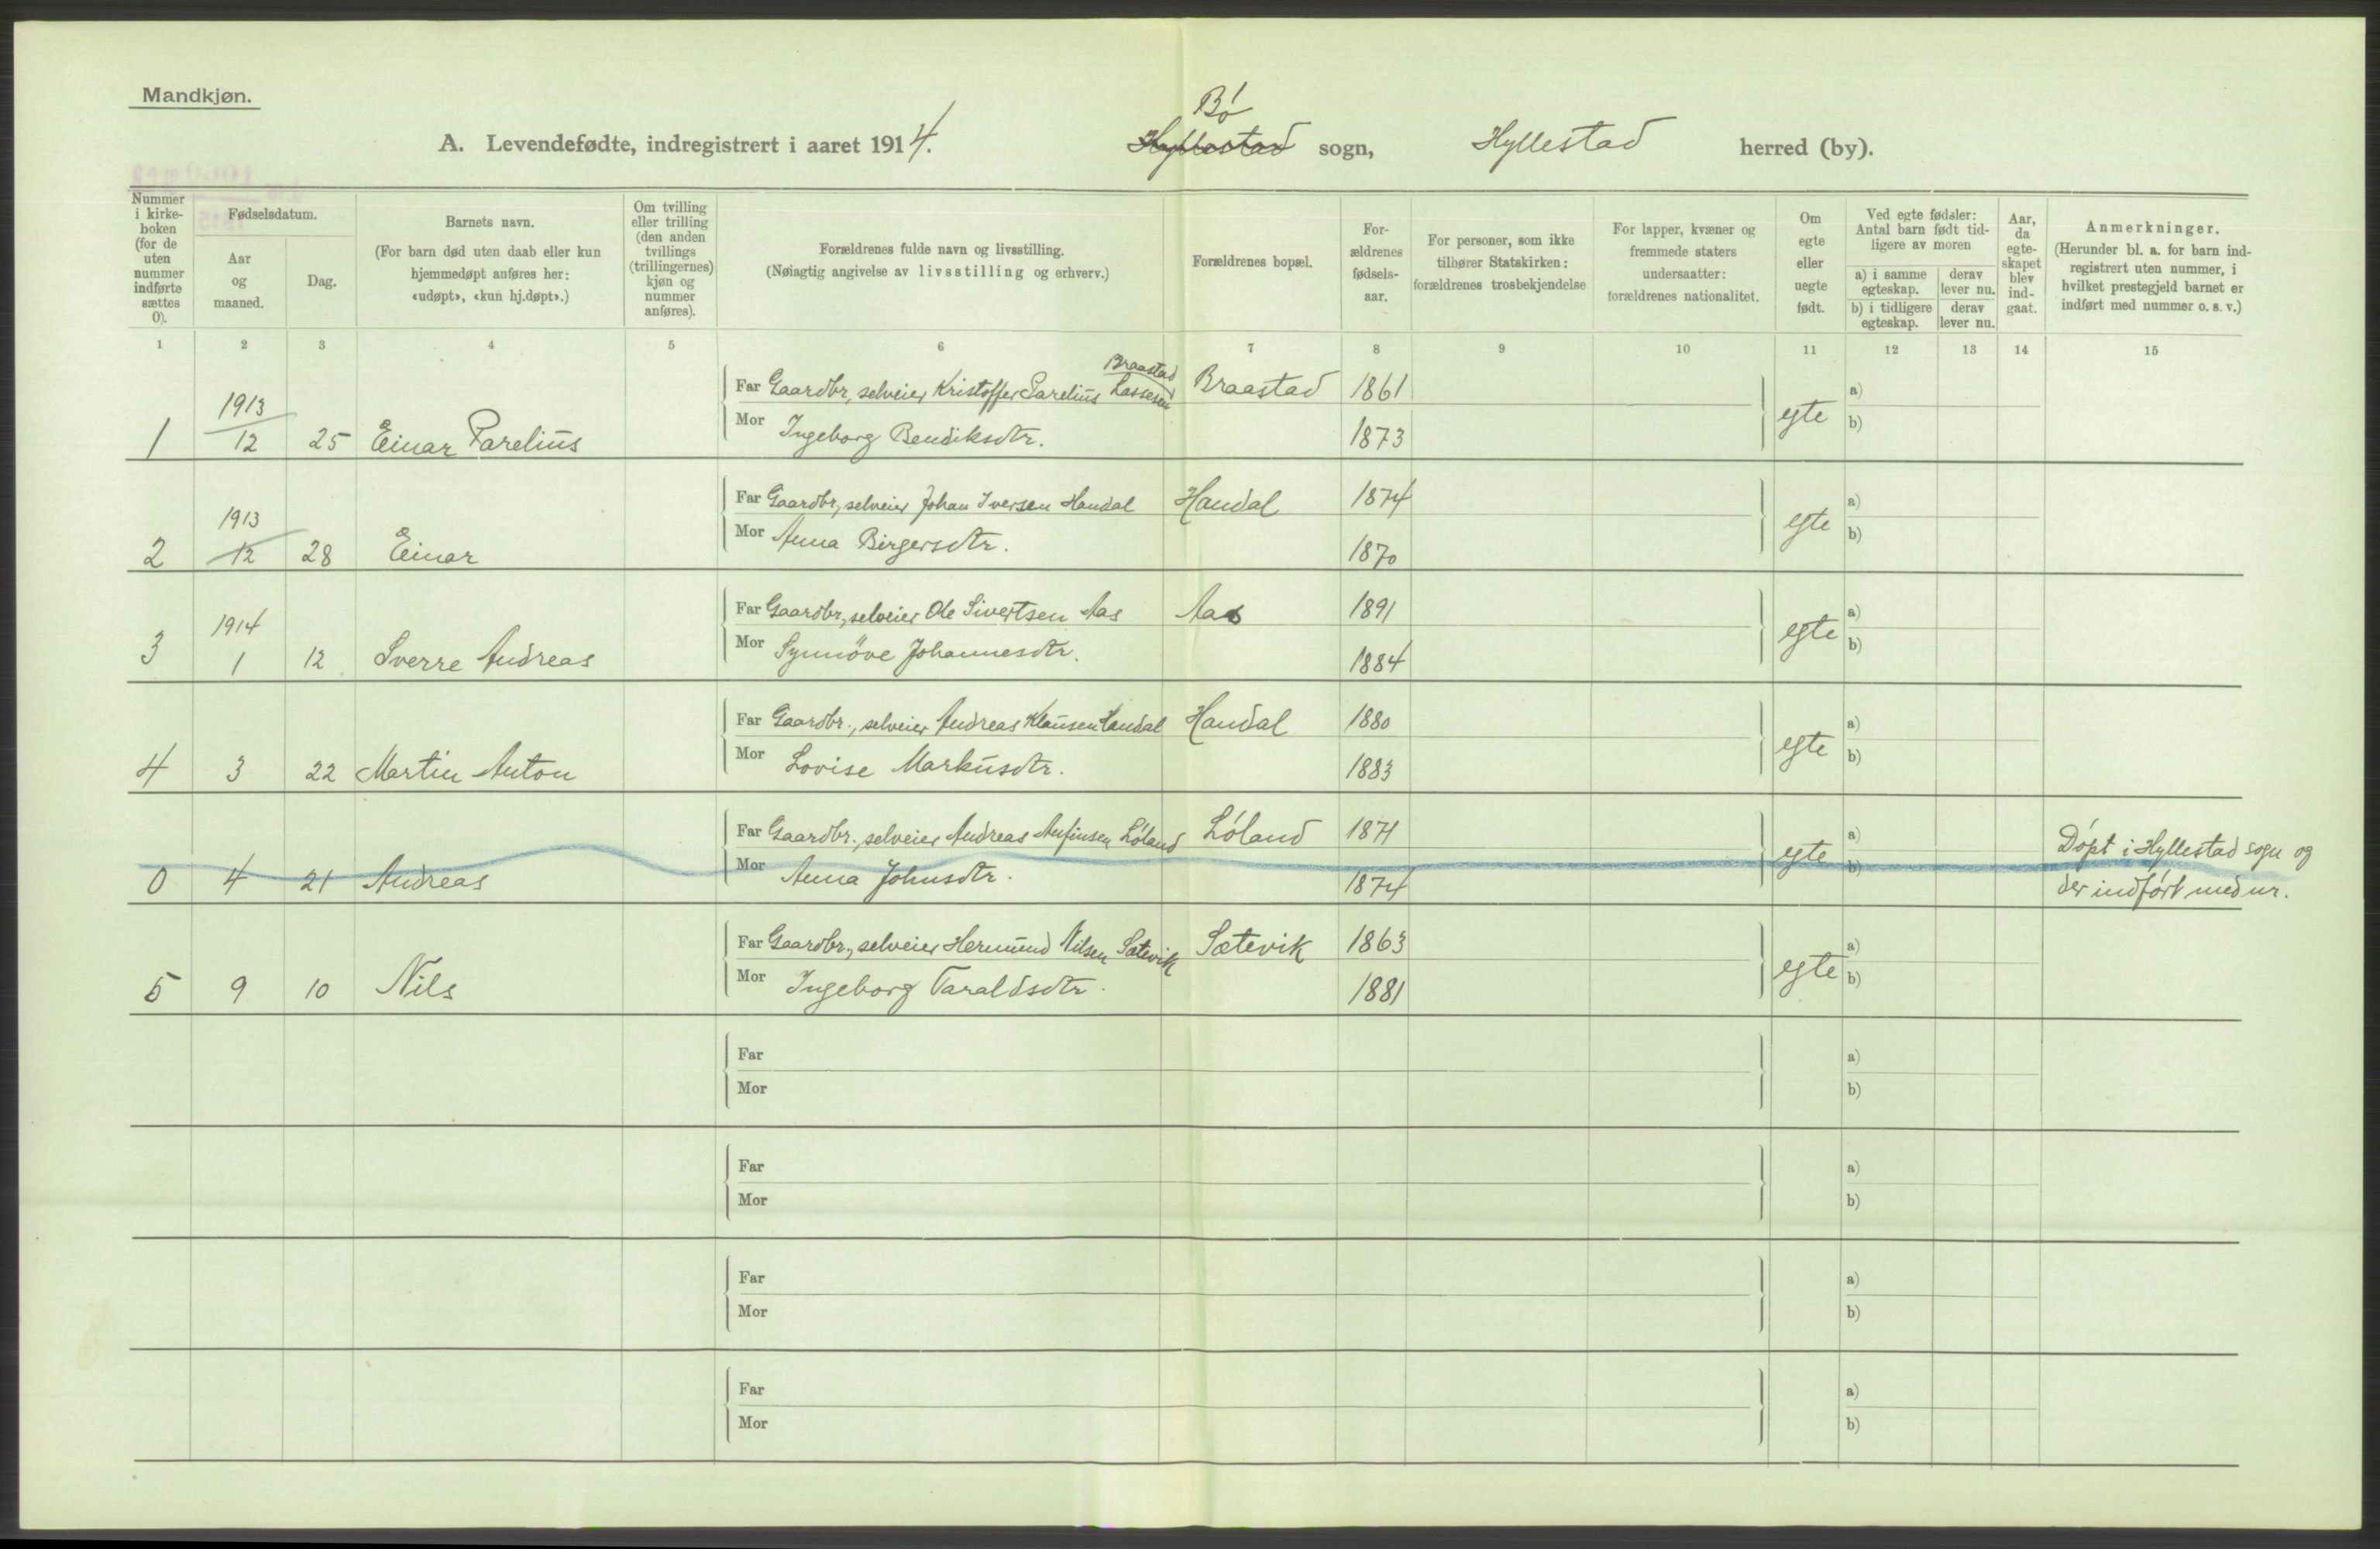 Mandkjøn.
A. Levendefødte, indregistrert i aaret 1914. Bø Hyllestad sogn, Hyllestad herred (by).
Nummer i kirkeboken (for de uten nummer indførte sættes 0).
Fødselsdatum.
Aar og maaned.
Dag.
Barnets navn.
(For barn død uten daab eller kun hjemmedøpt anføres her: «udøpt», «kun hj.døpt».)
Om tvilling eller trilling (den anden tvillings (trillingernes) kjøn og nummer anføres).
Forældrenes fulde navn og livsstilling.
(Nøiagtig angivelse av livsstilling og erhverv.)
Forældrenes bopæl.
Forældrenes fødselsaar.
For personer, som ikke tilhører Statskirken: forældrenes trosbekjendelse
For lapper, kvæner og fremmede staters undersaatter: forældrenes nationalitet.
Om egte eller uegte født.
Ved egte fødsler: Antal barn født tidligere av moren
a) i samme egteskap. derav lever nu.
b) i tidligere egteskap. derav lever nu.
Aar, da egteskapet blev indgaat.
Anmerkninger.
(Herunder bl. a. for barn indregistrert uten nummer, i hvilket prestegjeld barnet er indført med nummer o. s. v.)
1 2 3 4 5 6 7 8 9 10 11 12 13 14 15
Braastad
Far Gaardbr, selveier Kristoffer Parelius Lassesen Braastad 1861 a)
1 1913 12 25 Einar Parelius Mor Ingeborg Bendiksdtr. 1873 egte b)
Far Gaardbr, selveier Johan Iversen Handal Handal 1874 a)
2 1913 12 28 Einar Mor Anna Birgersdtr. 1870 egte b)
Far Gaardbr, selveier Ole Sivertsen Aas Aas 1891 a)
3 1914 1 12 Sverre Andreas Mor Synnöve Johannesdtr. 1884 egte b)
Far Gaardbr., selveier Andreas Klausen Handal Handal 1880 a)
4 3 22 Martin Anton Mor Lovise Markusdtr. 1883 egte b)
Far Gaardbr. selveier Andreas Anfinsen Löland Löland 1871 a) Döpt i Hyllestad sogn og
0 4 21 Andreas Mor Anna Johnsdtr. 1874 egte b) der indført med nr.
Far Gaardbr, selveier Hermund Nilsen Sætevik Sætevik 1863 a)
5 9 10 Nils Mor Ingeborg Taraldsdtr. 1881 egte b)
Far a)
Mor b)
Far a)
Mor b)
Far a)
Mor b)
Far a)
Mor b)